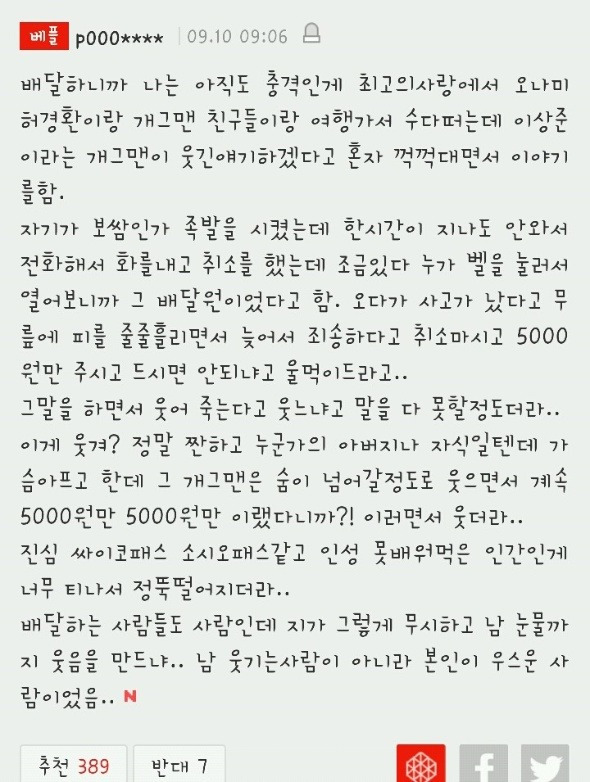 베플 p000**** 09.10 09:06
배달하니까 나는 아직도 충격인게 최고의사랑에서 오나미
허경환이랑 개그맨 친구들이랑 여행가서 수다떠는데 이상준
이라는 개그맨이 웃긴얘기하겠다고 혼자 꺽꺽대면서 이야기
를함.
자기가 보쌈인가 족발을 시켰는데 한시간이 지나도 안와서
전화해서 화를내고 취소를 했는데 조금있다 누가 벨을 눌러서
열어보니까 그 배달원이었다고 함. 오다가 사고가 났다고 무
릎에 피를 줄줄흘리면서 늦어서 죄송하다고 취소마시고 5000
원만 주시고 드시면 안되냐고 울먹이드라고..
그말을 하면서 웃어 죽는다고 웃느냐고 말을 다 못할정도더라..
이게 웃겨? 정말 짠하고 누군가의 아버지나 자식일텐데 가
슴아프고 한데 그 개그맨은 숨이 넘어갈정도로 웃으면서 계속
5000원만 5000원만 이랬다니까?! 이러면서 웃더라..
진심 싸이코패스 소시오패스같고 인성 못배워먹은 인간인게
너무 티나서 정뚝떨어지더라..
배달하는 사람들도 사람인데 지가 그렇게 무시하고 남 눈물까
지 웃음을 만드냐.. 남 웃기는사람이 아니라 본인이 우스운 사
람이었음.. N
추천 389 반대 7